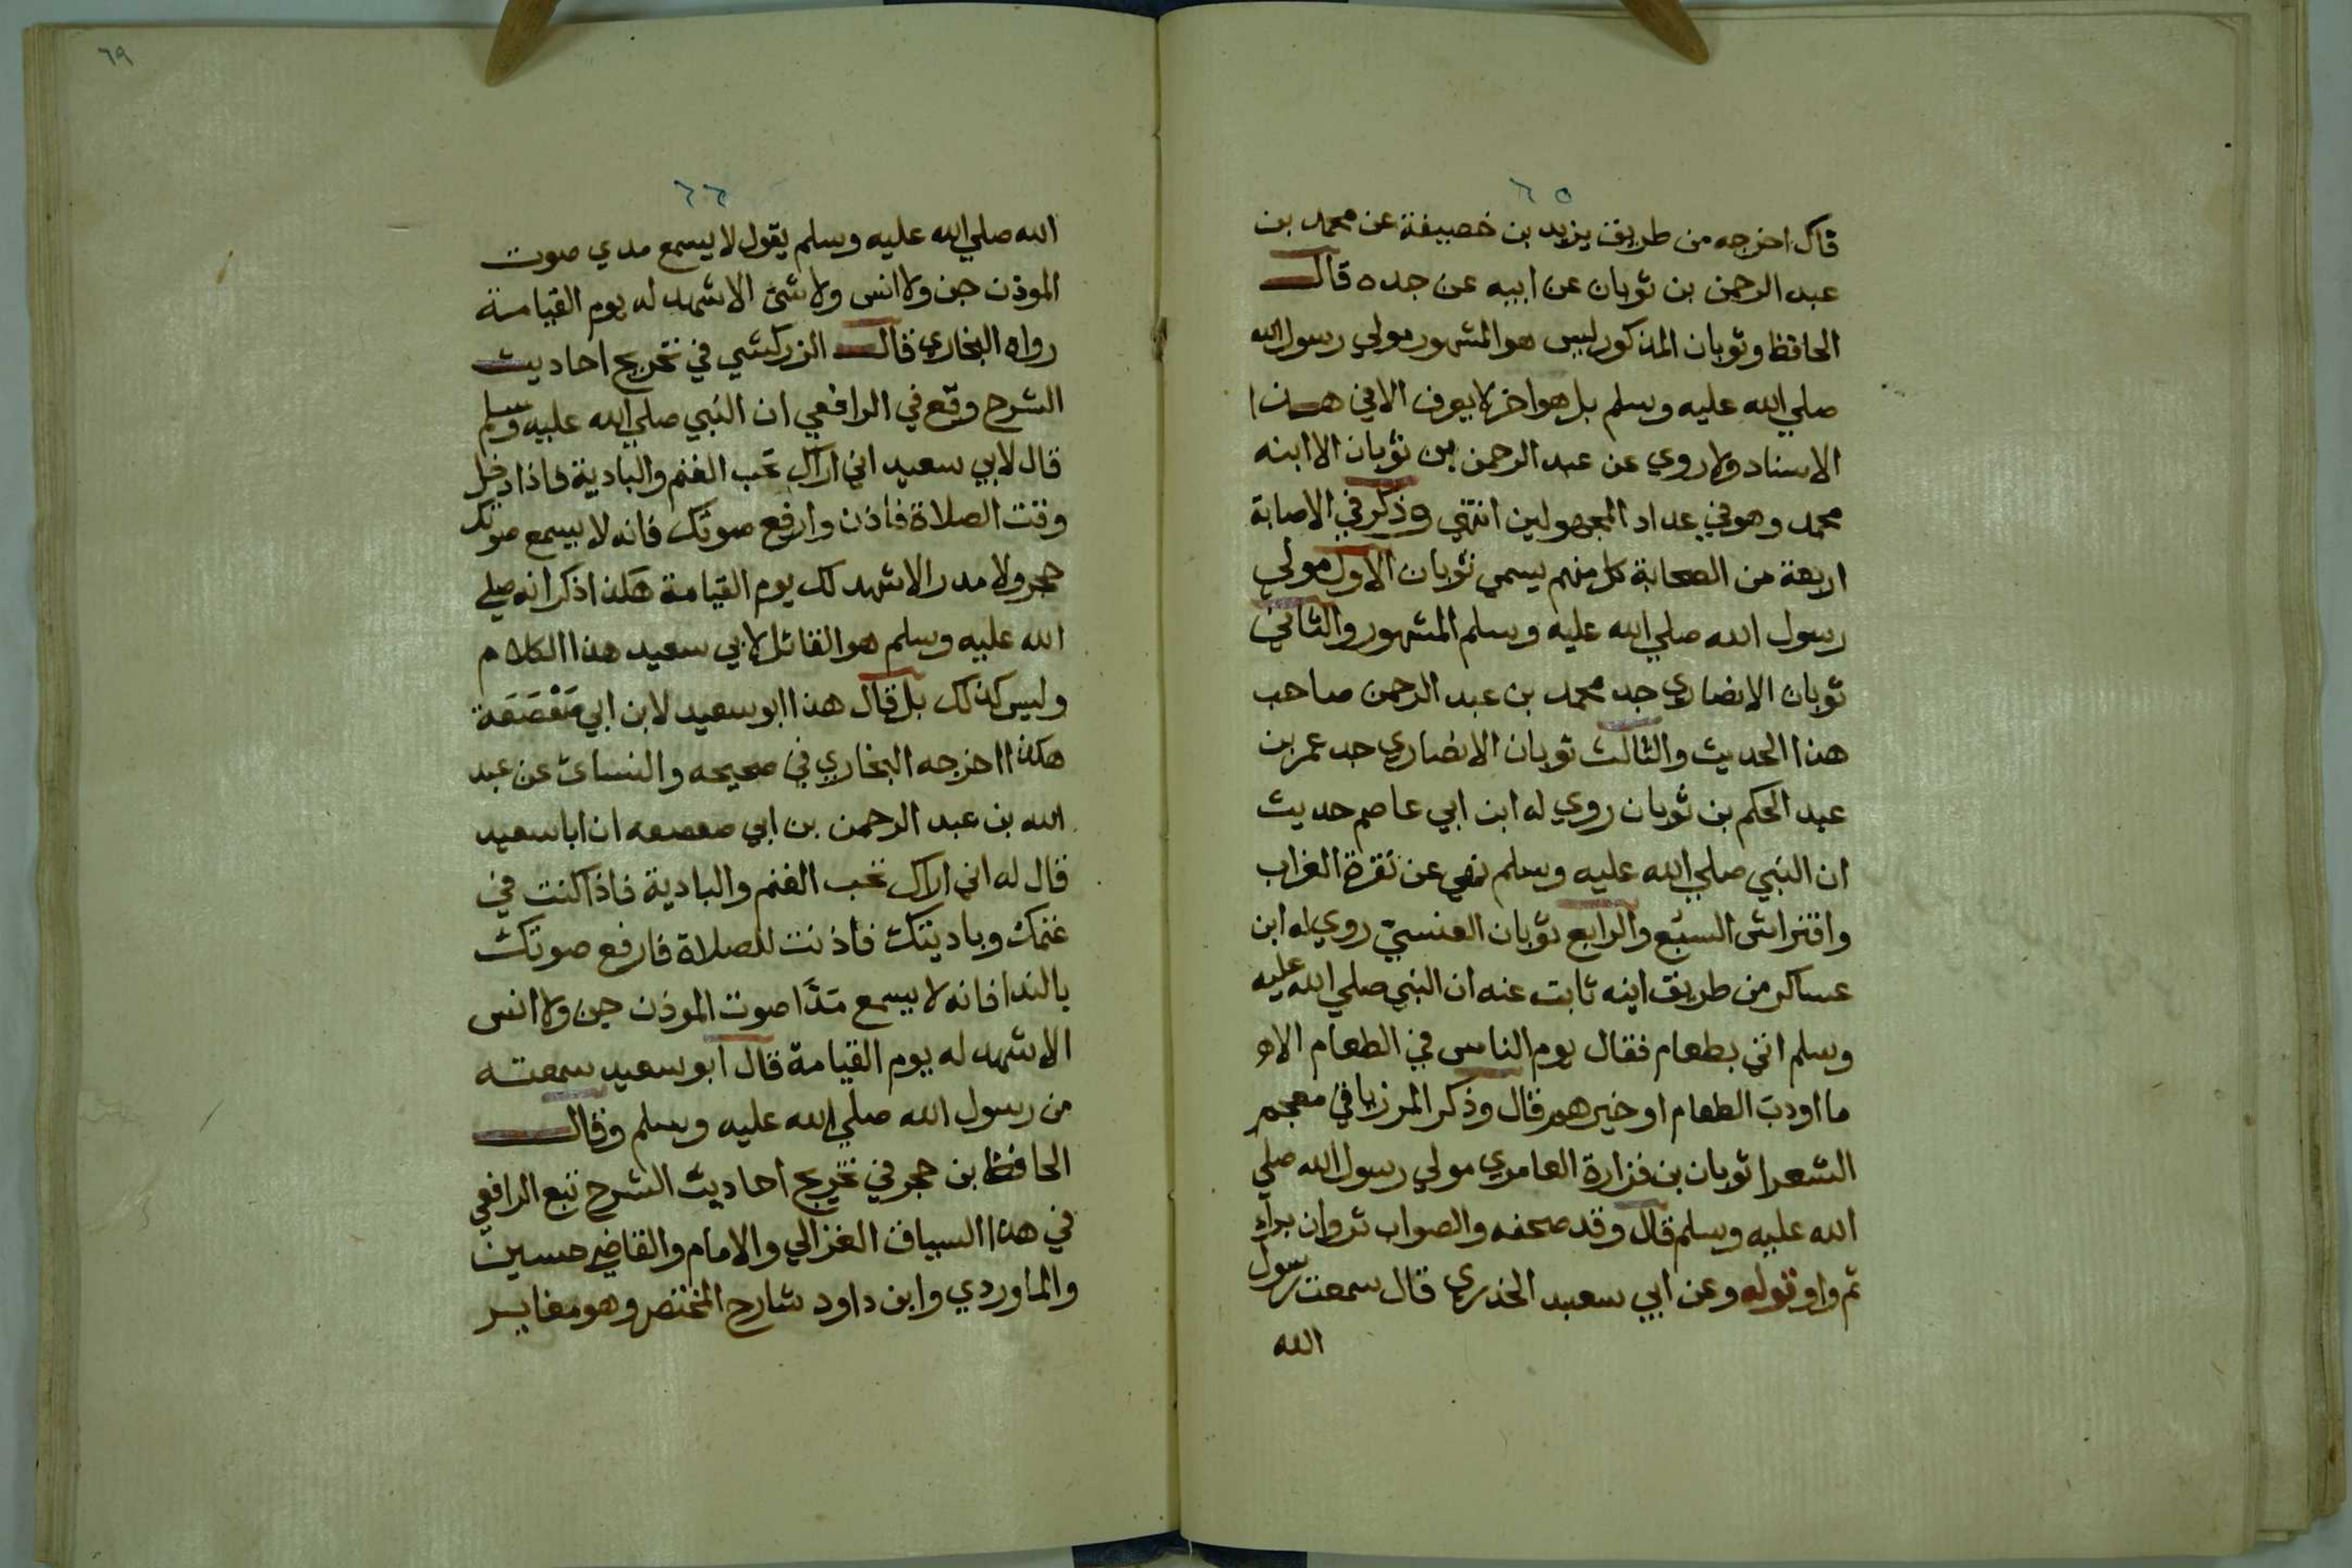 ٦٥
قال اخرجه من طريق يزيد بن خصيفة عن محمد بن
عبد الرحمن بن ثوبان عن ابيه عن جده قال
الحافظ وثوبان المذكور ليس هو المشهور مولي رسول الله
صلي الله عليه وسلم بل هو اخر لا يعرف الا في هذا
الاسناد ولا روي عن عبد الرحمن بن ثوبان الا ابنه
محمد وهو في عداد المجهولين انتهي وذكر في الاصابة
اربعة من الصحابة كل منهم يسمي ثوبان الاول مولي
رسول الله صلي الله عليه وسلم المشهور والثاني
ثوبان الانصاري جد محمد بن عبد الرحمن صاحب
هذا الحديث والثالث ثوبان الانصاري جد عمر بن
عبد الحكم بن ثوبان روي له ابن ابي عاصم حديث
ان النبي صلي الله عليه وسلم نهي عن نقرة الغراب
وافتراش السبع والرابع ثوبان العنسي روي له ابن
عساكر من طريق ابنه ثابت عنه ان النبي صلي الله عليه
وسلم اتي بطعام فقال يوم الناس في الطعام الا
ما اودب الطعام او خيرهم قال وذكر المرزبا في معجم
الشعرا ثوبان بن فزارة العامري مولي رسول الله صلي
الله عليه وسلم قال وقد صحفه والصواب ثروان براء
ثم واو قوله وعن ابي سعيد الخدري قال سمعت رسول
الله
٦٩
٦٦
الله صلي الله عليه وسلم يقول لا يسمع مدي صوت
الموذن جن ولا انس ولا شئ الا شهد له يوم القيامة
رواه البخاري قال الزركشي في تخريج احاديث
الشرح وقع في الرافعي ان النبي صلي الله عليه وسلم
قال لابي سعيد اني اراك تحب الغنم والبادية فاذا دخل
وقت الصلاة فاذن وارفع صوتك فانه لا يسمع صوتك
حجر ولا مدر الا شهد لك يوم القيامة هكذا ذكر انه صلي
الله عليه وسلم هو القائل لابي سعيد هذا الكلام
وليس كذلك بل قال هذا ابو سعيد لابن ابي صَعْصَعَة
هكذا اخرجه البخاري في صحيحه والنسائ عن عبد
الله بن عبد الرحمن بن ابي صعصعه ان ابا سعيد
قال له اني اراك تحب الغنم والبادية فاذا كنت في
غنمك وباديتك فاذنت للصلاة فارفع صوتك
بالندا فانه لا يسمع مَدَا صوت الموذن جن ولا انس
الا شهد له يوم القيامة قال ابو سعيد سمعته
من رسول الله صلي الله عليه وسلم وقال
الحافظ بن حجر في تخريج احاديث الشرح تبع الرافعي
في هذا السياق الغزالي والامام والقاضي حسين
والماوردي وابن داود شارح المختصر وهو مغاير